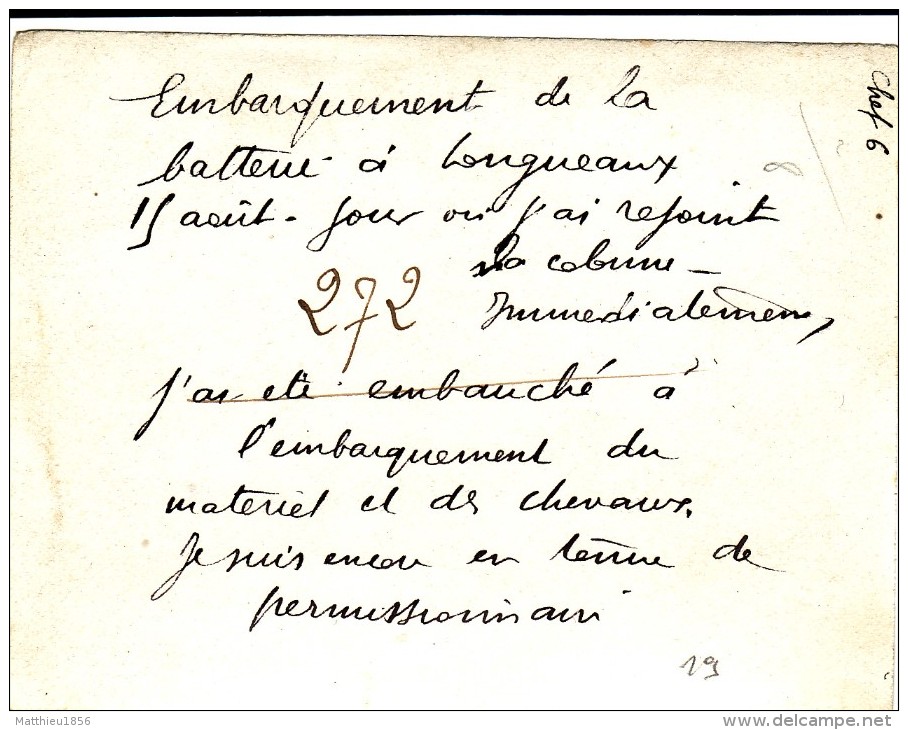 Embarquement de la
batterie à Longueaux
15 août - jour où j'ai rejoint
la colonne -
272
Immediatement,
j'ai été embauché à
l'embarquement du
materiel et des chevaux.
Je suis encore en tenue de
permissionnaire
19
Chef 6
8
Matthieu1856
www.delcampe.net